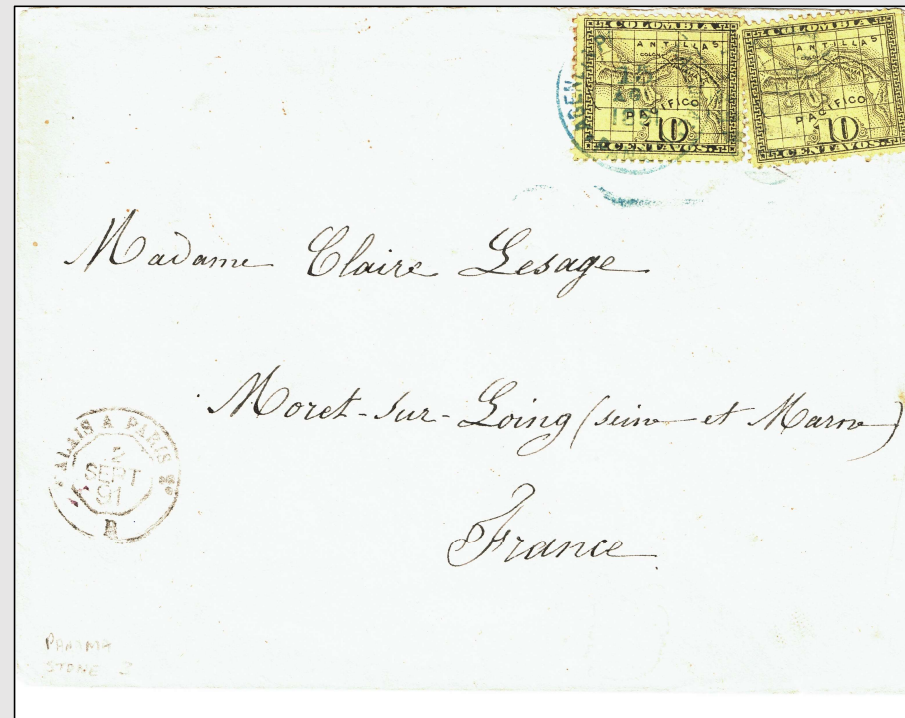 COLOMBIA
ANTILLAS
PACIFICO
10
CENTAVOS
COLOMBIA
ANTILLAS
PACIFICO
10
CENTAVOS
15
1891
Madame Claire Lesage
Moret-sur-Loing (seine et Marne)
France
CALAIS A PARIS
2
SEPT
91
B
PANAMA
STONE